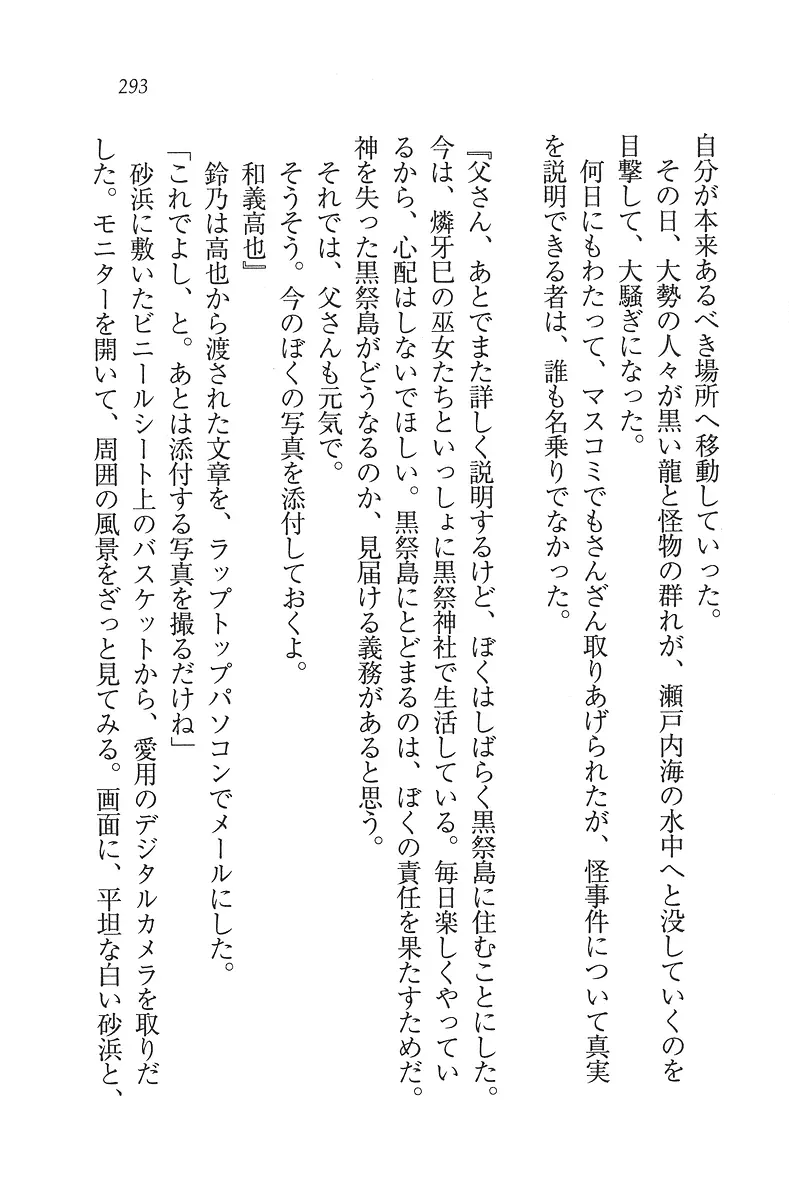 293
自分が本来あるべき場所へ移動していった。
その日、大勢の人々が黒い龍と怪物の群れが、瀬戸内海の水中へと没していくのを
目撃して、大騒ぎになった。
何日にもわたって、マスコミでもさんざん取りあげられたが、怪事件について真実
を説明できる者は、誰も名乗りでなかった。
『父さん、あとでまた詳しく説明するけど、ぼくはしばらく黒祭島に住むことにした。
今は、燐牙巳の巫女たちといっしょに黒祭神社で生活している。毎日楽しくやってい
るから、心配はしないでほしい。黒祭島にとどまるのは、ぼくの責任を果たすためだ。
神を失った黒祭島がどうなるのか、見届ける義務があると思う。
それでは、父さんも元気で。
そうそう。今のぼくの写真を添付しておくよ。
和義高也』
鈴乃は高也から渡された文章を、ラップトップパソコンでメールにした。
「これでよし、と。あとは添付する写真を撮るだけね」
砂浜に敷いたビニールシート上のバスケットから、愛用のデジタルカメラを取りだ
した。モニターを開いて、周囲の風景をざっと見てみる。画面に、平坦な白い砂浜と、